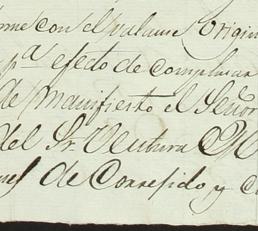 con el balance Origin
pª efecto de comprobar
de manifiesto el Señor
del Sr. Ventura
de Corregido y